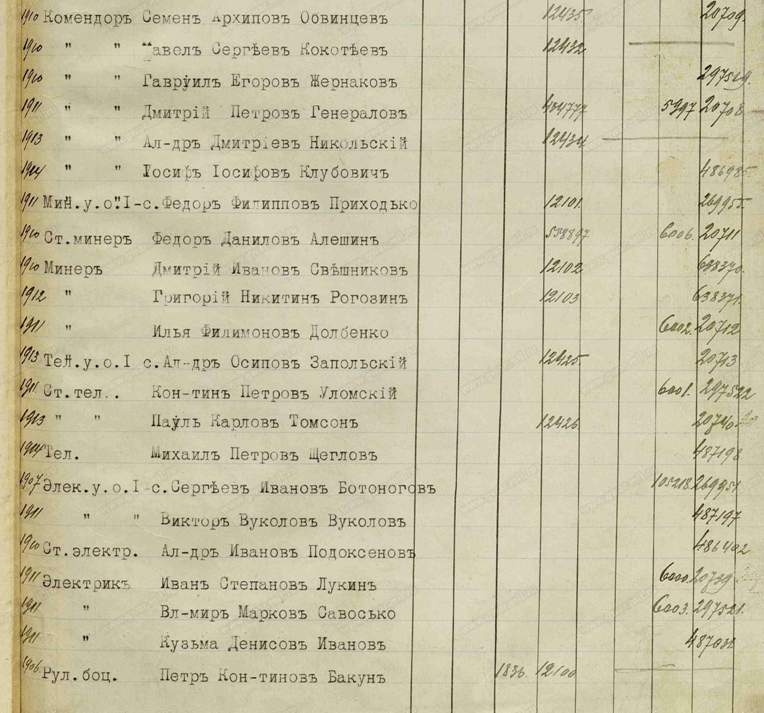 1910 Комендоръ Семенъ Архиповъ Обвинцевъ 12435 20709.
1910 " " Павелъ Сергѣевъ Кокотѣевъ 12432
1910 " " Гавруилъ Егоровъ Жернаковъ 297519.
1911 " " Дмитрій Петровъ Генераловъ 5997 20708
1913 " " Ал-дръ Дмитріевъ Никольскій 12434
1904 " " Іосифъ Іосифовъ Клубовичъ 486985.
1911 Мин.у.о.I-с.Федоръ Филипповъ Приходько 12101 269955.
1910 Ст.минеръ Федоръ Даниловъ Алешинъ 538897 6006. 20711
1910 Минеръ Дмитрій Ивановъ Свѣшниковъ 12102 638370.
1912 " Григорій Никитинъ Рогозинъ 12103 638371.
1911 " Илья Филимоновъ Долбенко 6002. 20712
1913 Тел.у.о.I с.Ал-дръ Осиповъ Запольскій 12425 20713
1911 Ст.тел.. Кон-тинъ Петровъ Уломскій 6001. 297522
1913 " " Пауль Карловъ Томсонъ 12426 20740
1904 Тел. Михаилъ Петровъ Щегловъ 487198
1907 Элек.у.о.I-с.Сергѣевъ Ивановъ Ботоноговъ 105218 269951
1911 " " Викторъ Вуколовъ Вуколовъ 487197
1910 Ст.электр. Ал-дръ Ивановъ Подоксеновъ 486402
1911 Электрикъ Иванъ Степановъ Лукинъ 6000. 20739
1911 " Вл-миръ Марковъ Савосько 6003. 297521.
1911 " Кузьма Денисовъ Ивановъ
1906 Рул.боц. Петръ Кон-тиновъ Бакунъ 1836. 12100